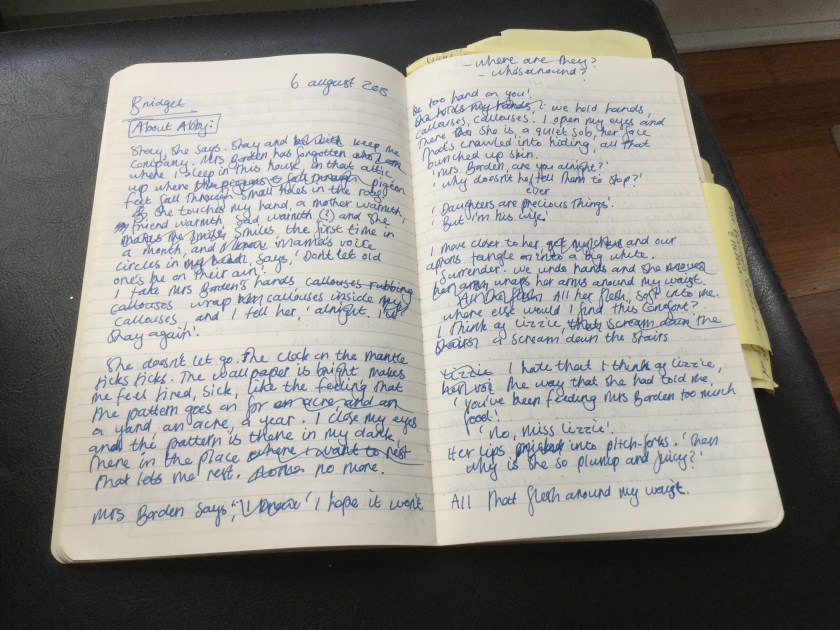 6 august 2015
Bridget
About Abby:
Stay, she says. Stay and keep me
company. Mrs Borden has forgotten who I am
where I sleep in this house, in that attic
up where the pigeons fall through pigeon
feet fall through small holes in the roof
So she touches my hand, a mother warmth,
friend warmth sad warmth (?) and she
makes the smiles smiles, the first time in
a month, and Mama's voice
circles in my head, says, 'Dont let old
one's be on their own'.
I take Mrs Borden's hands callouses rubbing
callouses wrap callouses inside my
callouses and I tell her, 'alright. I'll
stay again'.
She doesn't let go. The clock on the mantle
ticks ticks. The wallpaper is bright makes
me feel tired, sick, like the feeling that
the pattern goes on for an acre and an
a yard an acre, a year. I close my eyes
and the pattern is there in my dark,
there in the place where I want to rest
that lets me rest. no more.
Mrs Borden says, 'I know' 'I hope it won't
- where are they?
- whos around?
be too hard on you'.
She holds my hands, : we hold hands,
callouses, callouses. I open my eyes and
there she is, a quiet sob, her face
thats crawled into hiding, all that
bunched up skin.
'Mrs Borden, are you alright?'
'Why doesn't he tell them to stop?'
ever
'Daughters are precious things'.
'But I'm his wife'.
I move closer to her, and our
aprons tangle into a big white.
'Surrender'. We undo hands and she moves
her arms wraps her arms around my waist.
All the flesh All her flesh, soft into me.
where else would I find this comfort?
I think of Lizzie, that scream down the
stairs a scream down the stairs
Lizzie I hate that I think of Lizzie,
the way that she had told me,
'You've been feeding Mrs Borden too much
food!'
'No, Miss Lizzie'.
Her lips pricked into pitch-forks. 'Then
why is she so plump and juicy?'
All that flesh around my waist.